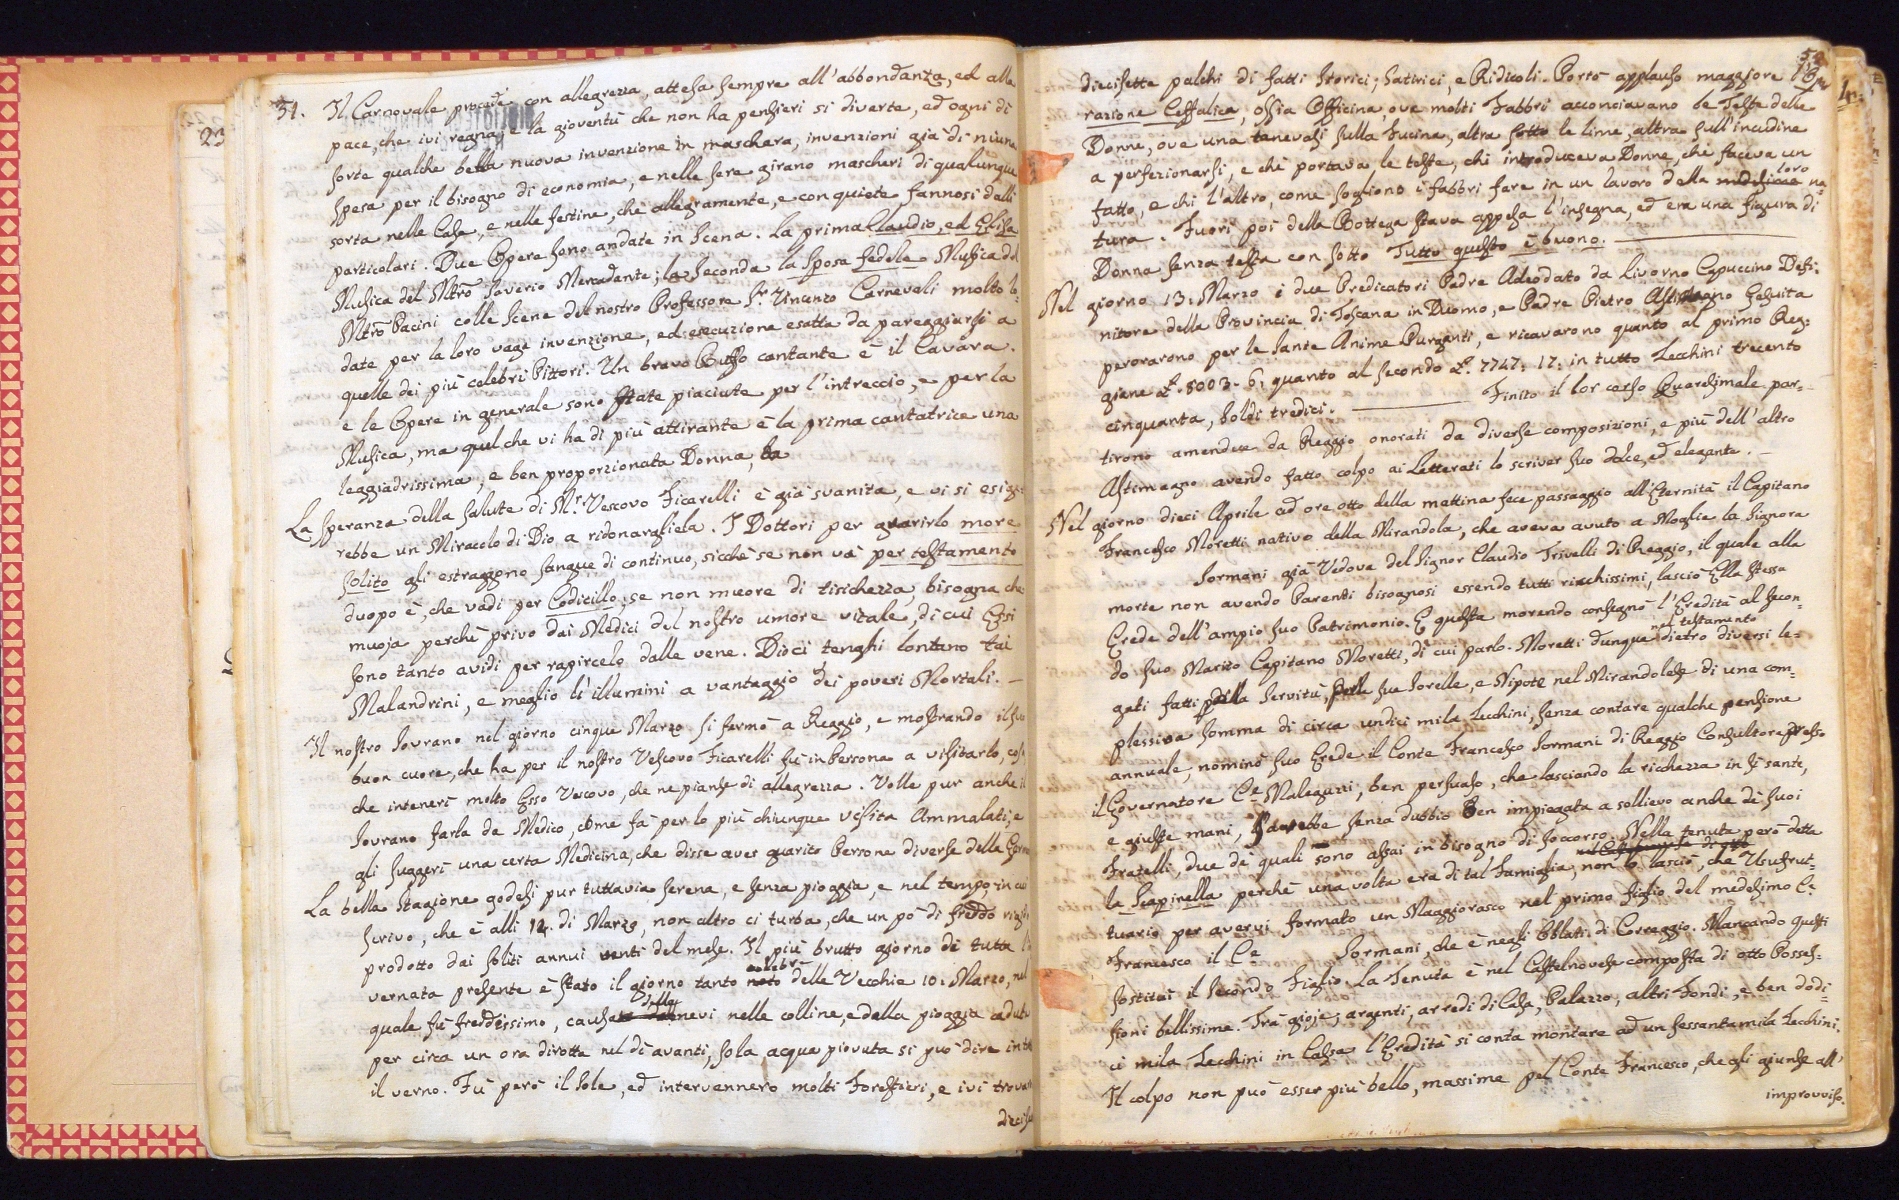 51. Il Carnovale procede con allegrezza, attesa sempre all'abbondanza, ed alla
pace, che ivi regna, e la gioventù che non ha pensieri si diverte, ed ogni dì
sorte qualche bella nuova invenzione in maschera, invenzioni già di niuna
spesa per il bisogno di economia, e nelle sere girano mascheri di qualunque
sorta nelle Case, e nelle festine, che allegramente, e con quiete fannosi dalli
particolari. Due Opere sono andate in Scena. La prima Claudio, ed Elisa
Musica del Mtrõ Saverio Mercadante; la Seconda la Sposa fedele Musica del
Mtrõ Pacini colle Scene del nostro Professore Sr. Vincenzo Carnevali molto lo-
date per la loro vega invenzione, ed esecuzione esatta da pareggiarsi a
quelle dei più celebri Pittori. Un bravo Buffo cantante è il Cavara.
e le Opere in generale sono state piaciute per l'intreccio, e per la
Musica, ma quel che vi ha di più attirante è la prima cantatrice una
leggiadrissima, e ben proporzionata Donna,
La speranza della salute di Mr. Vescovo Ficarelli è già svanita, e vi si esige-
rebbe un Miracolo di Dio a ridonargliela. I Dottori per guarirlo more
solito gli estraggono sangue di continuo, sicchè se non và per testamento
duopo è, che vadi per Codicillo; se non muore di tisichezza, bisogna che
muoja perchè privo dai Medici del nostro umore vitale, di cui Essi
sono tanto avidi per rapircelo dalle vene. Dioci tenghi lontano tai
Malandrini, e meglio li illumini a vantaggio dei poveri Mortali. —
Il nostro Sovrano nel giorno cinque Marzo si fermò a Reggio, e mostrando il suo
buon cuore, che ha per il nostro Vescovo Ficarelli fù in Persona a visitarlo, cosa
che intenerì molto Esso Vescovo, che ne pianse di allegrezza. Volle pur anche il
Sovrano farla da Medico, come fà per lo più chiunque visita Ammalati, e
gli suggerì una certa Medicina, che disse aver guarito Persone diverse della
La bella Stagione godesi pur tuttavia serena, e senza pioggia, e nel tempo, in cui
scrivo, che è alli 12. di Marzo, non altro ci turba, che un pò di freddo
prodotto dai soliti annui venti del mese. Il più brutto giorno di tutta l'in
vernata presente è stato il giorno tanto noto celebre delle Vecchie 10. Marzo, nel
quale fù freddissimo, causa delle nevi nelle colline, e della pioggia caduta
per circa un ora dirotta nel dì avanti, sola acqua piovuta si può dire in tutto
il verno. Fù però il Sole, ed intervennero molti Forestieri, e ivi trovaronsi
diecise
52.
diecisette palchi di fatti Storici, Satirici, e Ridicoli. Portò applauso maggiore l'Ope
razione Ceffalica, ossia Officina, ove molti Fabbri acconciavano le Teste delle
Donne, ove una tenevasi sulla Fucina, altra sotto le lime, altra sull'incudine
a perfezionarsi, e chi portava le teste, chi introduceva Donne, chi faceva un
fatto, e chi l'altro, come sogliono i fabbri fare in un lavoro della medesima loro na-
tura. Fuori poi della Bottega stava appesa l'insegna, ed era una figura di
Donna senza testa con sotto Tutto questo è buono.
Nel giorno 13: Marzo i due Predicatori Padre Adeodato da Livorno Capuccino Defi-
nitore della Provincia di Toscana in Duomo, e Padre Pietro Astimagno Gesuita
perorarono per le Sante Anime Purganti, e ricavarono quanto al primo Reg-
giane £. 8003. 6; quanto al secondo £. 7747: 17: in tutto Zecchini trecento
cinquanta, soldi tredici. Finito il lor corso Quaresimale par-
tirono amendue da Reggio onorati da diverse composizioni, e più dell'altro
Astimagno avendo fatto colpo ai Letterati lo scriver suo dolce, ed elegante. —
Nel giorno dieci Aprile ad ore otto della mattina fece passaggio all'Eternità il Capitano
Francesco Moretti nativo della Mirandola, che aveva avuto a Moglie la Signora
Sormani già Vedova del Signor Claudio Trivelli di Reggio, il quale alla
morte non avendo Parenti bisognosi essendo tutti ricchissimi, lasciò Ella stessa
Erede dell'ampio suo Patrimonio. E questa morendo consegnò l'Eredità al secon-
do suo Marito Capitano Moretti, di cui parlo. Moretti dunque nel testamento dietro diversi le-
gati fatti alla Servitù, alle sue Sorelle, e Nipote nel Mirandolese di una com-
plessiva somma di circa undici mila Zecchini, senza contare qualche pensione
annuale, nominò suo Erede il Conte Francesco Sormani di Reggio Consultore presso
il Governatore Ce. Maleguzzi, ben persuaso, che lasciando la ricchezza in sì sante,
e giuste mani, sarebbe senza dubbio ben impiegata a sollievo anche de suoi
Fratelli, due de quali sono assai in bisogno di soccorso. Nella tenuta però detta
la Scapinella perchè una volta era di tal Famiglia, non lo lasciò, che Usufrut-
tuario per avervi formato un Maggiorasco nel primo figlio del medesimo Ce.
Francesco il Ce. Sormani, che è negli Oblati di Correggio. Mancando questi
sostituì il Secondo Figlio. La Tenuta è nel Castelnovese composta di otto Posses-
sioni bellissime. Trà gioje, argenti, arredi di Casa, Palazzo, altri Fondi, e ben dodi-
ci mila Zecchini in Cassa l'Eredità si conta montare ad un sessantamila Zecchini.
Il colpo non può esser più bello, massime pel Conte Francesco, che gli giunse all'
improvviso.
23